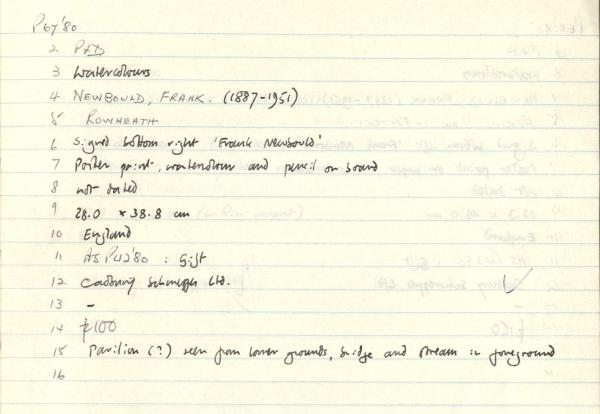 P67'80
2 P&D
3 Watercolours
4 NEWBOULD, FRANK. (1887-1951)
5 ROWHEATH
6 Signed bottom right 'Frank Newbould'
7 Poster paint, watercolour and pencil on board
8 not dated
9 28.0 x 38.8 cm
10 England
11 AS P42'80 : Gift
12 Cadbury Schweppes Ltd.
13 -
14 £100
15 Pavilion (?) seen from lower grounds, bridge and stream in foreground
16